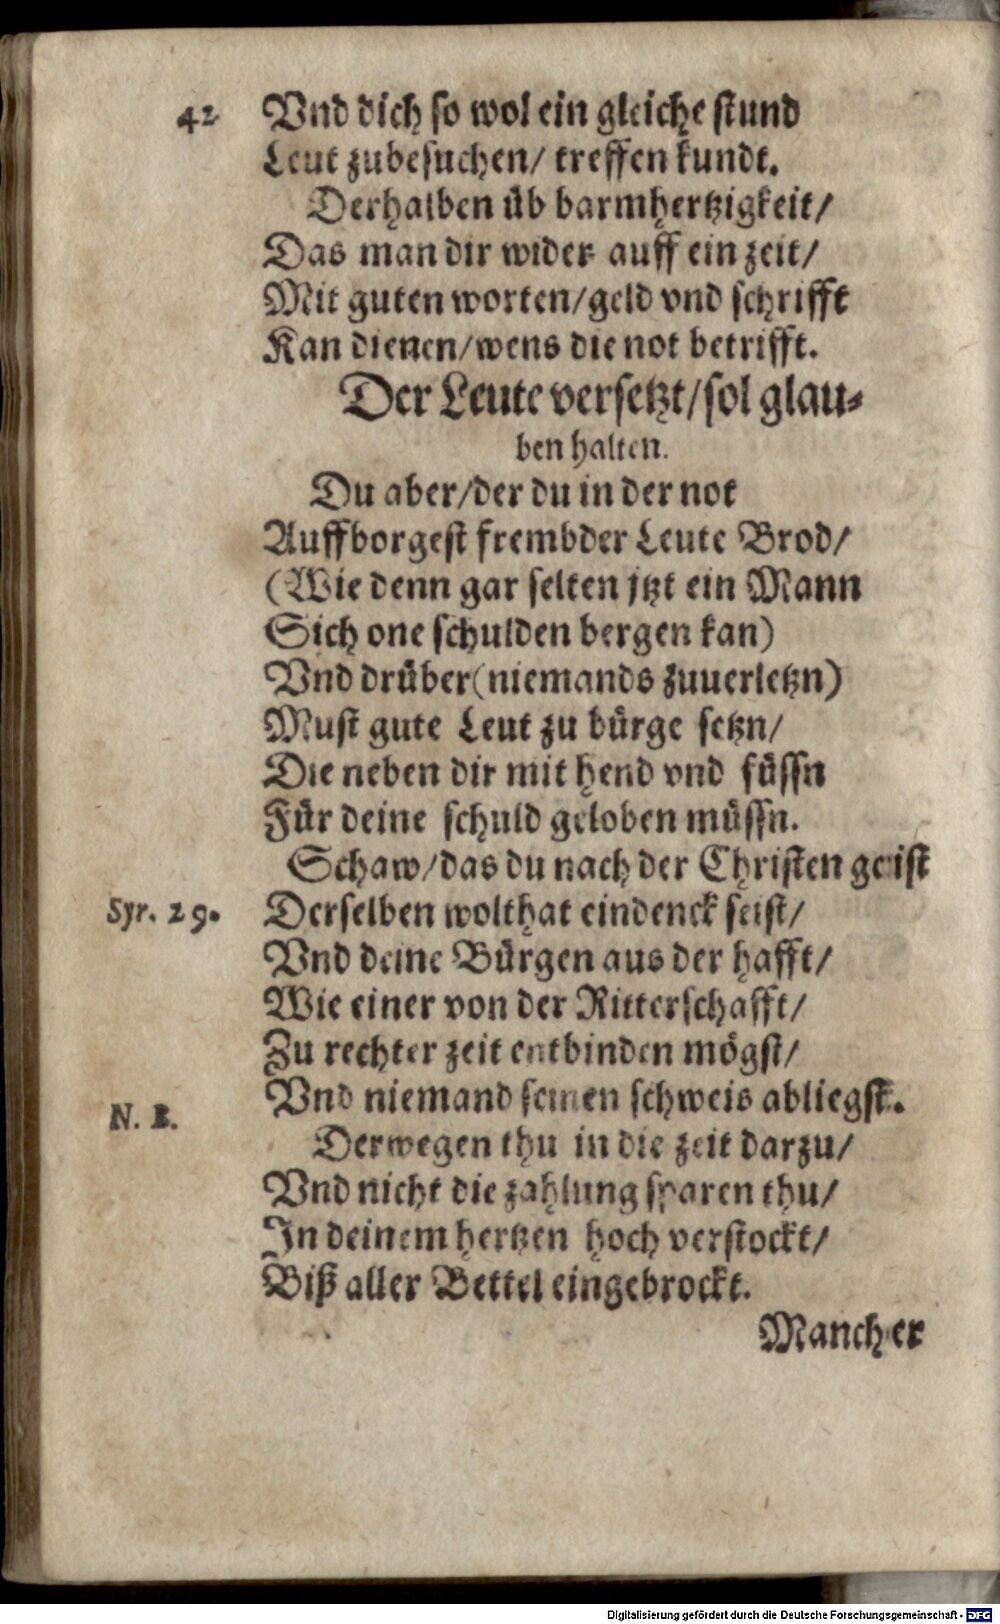 42 Vnd dich so wol ein gleiche stund
Leut zubesuchen/ treffen kundt.
Derhalben üb barmhertzigkeit/
Das man dir wider auff ein zeit/
Mit guten worten/geld vnd schrifft
Kan dienen/wens die not betrifft.
Der Leute versetzt/sol glau-
ben halten.
Du aber/der du in der not
Auffborgest frembder Leute Brod/
(Wie denn gar selten jtzt ein Mann
Sich one schulden bergen kan)
Vnd drüber(niemands zuuerletzn)
Must gute Leut zu bürge setzn/
Die neben dir mit hend vnd füssn
Für deine schuld geloben müssn.
Schaw/das du nach der Christen geist
Syr. 29. Derselben wolthat eindenck seist/
Vnd deine Bürgen aus der hafft/
Wie einer von der Ritterschafft/
Zu rechter zeit entbinden mögst/
N. B. Vnd niemand seinen schweis abliegst.
Derwegen thu in die zeit darzu/
Vnd nicht die zahlung sparen thu/
In deinem hertzen hoch verstockt/
Biß aller Bettel eingebrockt.
Mancher
Digitalisierung gefördert durch die Deutsche Forschungsgemeinschaft - DFG